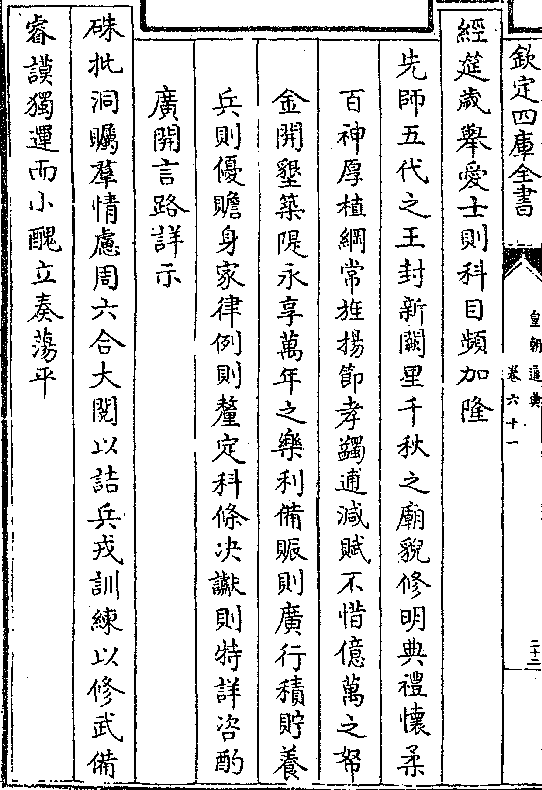 欽定四庫全書
皇朝通典
卷六十一
二十二
經筵歲舉愛士則科目頻加隆
先師五代之王封新闕里千秋之廟貌修明典禮懷柔
百神厚植綱常旌揚節孝蠲逋減賦不惜億萬之帑
金開墾築隄永享萬年之樂利備賑則廣行積貯養
兵則優贍身家律例則釐定科條决讞則特詳咨酌
廣開言路詳示
硃批洞矚羣情慮周六合大閱以詰兵戎訓練以修武備
睿謨獨運而小醜立奏蕩平